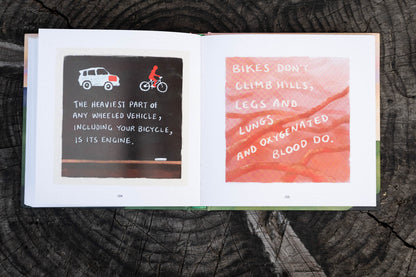 THE HEAVIEST PART OF
ANY WHEELED VEHICLE,
INCLUDING YOUR BICYCLE,
IS ITS ENGINE.
BIKES DON'T
CLIMB HILLS,
LEGS AND
LUNGS
AND OXYGENATED
BLOOD DO.